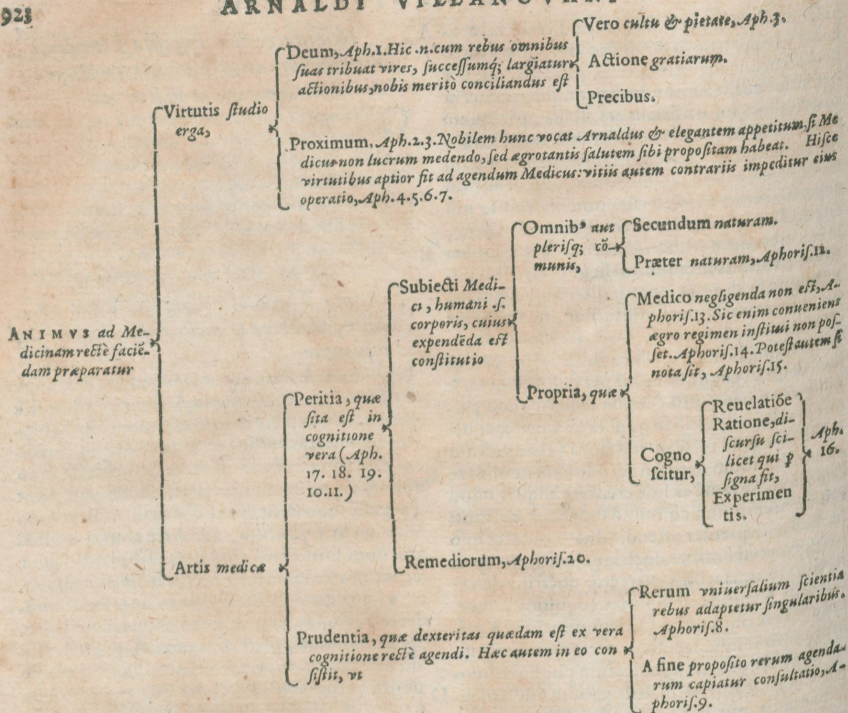 923
ARNALDI VILLANOVANI
ANIMVS ad Me-
dicinam rectè faciē-
dam præparatur
Virtutis ſtudio
erga,
Deum, Aph.1. Hic .n. cum rebus omnibus
ſuas tribuat vires, ſucceſſumq; largiatur
actionibus, nobis meritò conciliandus eſt
Vero cultu & pietate, Aph.3.
Actione gratiarum.
Precibus.
Proximum, Aph.2.3. Nobilem hunc vocat Arnaldus & elegantem appetitum, ſi Me
dicus non lucrum medendo, ſed ægrotantis ſalutem ſibi propoſitam habeat. Hiſce
virtutibus aptior fit ad agendum Medicus: vitiis autem contrariis impeditur eius
operatio, Aph.4.5.6.7.
Artis medicæ
Peritia, quæ
ſita eſt in
cognitione
vera (Aph.
17. 18. 19.
10.11.)
Subiecti Medi-
ci, humani .ſ.
corporis, cuius
expendēda eſt
conſtitutio
Omnibꝰ aut
pleriſq; cō-
munis,
Secundum naturam.
Præter naturam, Aphoriſ.12.
Propria, quæ
Medico negligenda non eſt, A-
phoriſ.13. Sic enim conueniens
ægro regimen inſtitui non poſ-
ſet. Aphoriſ.14. Poteſt autem ſi
nota ſit, Aphoriſ.15.
Cogno
ſcitur,
Reuelatiōe
Ratione, di-
ſcurſu ſci-
licet qui ꝑ
ſigna fit,
Experimen
tis.
Aph.
16.
Remediorum, Aphoriſ.20.
Prudentia, quæ dexteritas quædam eſt ex vera
cognitione rectè agendi. Hæc autem in eo con
ſiſtit, vt
Rerum vniuerſalium ſcientia
rebus adaptetur ſingularibus.
Aphoriſ.8.
A fine propoſito rerum agenda-
rum capiatur conſultatio, A-
phoriſ.9.